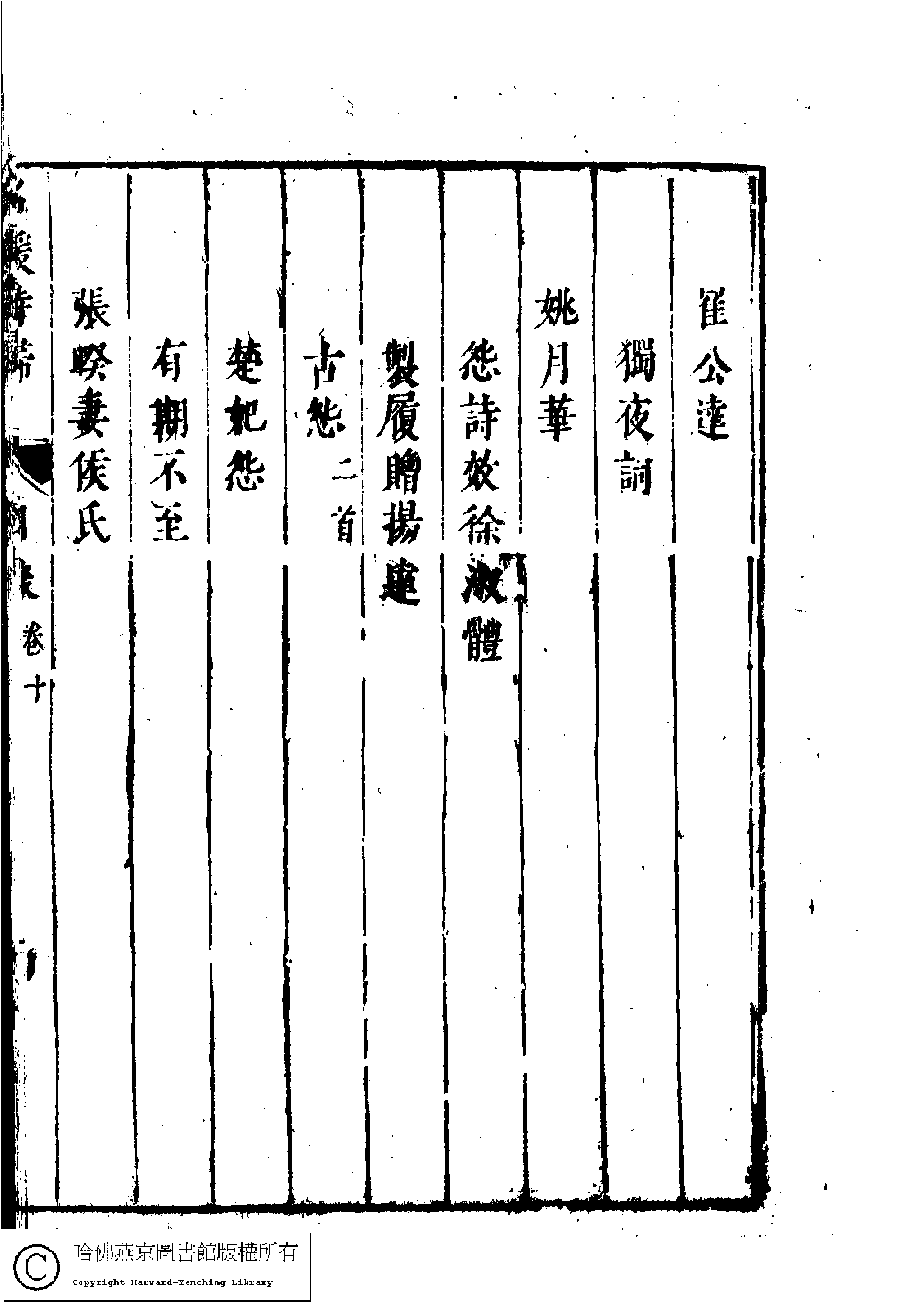 崔公達
獨夜詞
姚月華
怨詩效徐淑體
製履贈楊達
古怨 二首
楚妃怨
有期不至
張睽妻侯氏
名媛詩歸 目錄 卷十
哈佛燕京圖書館版權所有
Copyright Harvard-Yenching Library